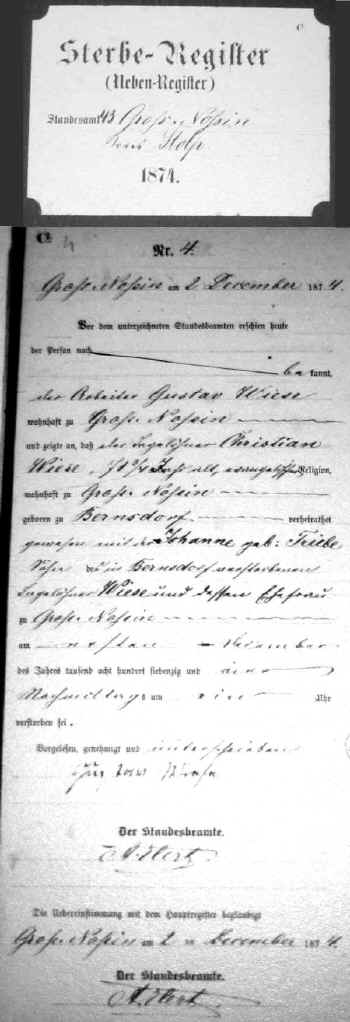 C
Sterbe-Register
(Neben-Register)
Standesamt 43 Groß-Nossin
Kreis Stolp
1874.
C. 4
Nr. 4.
Groß-Nossin am 2 December 1874.
Vor dem unterzeichneten Standesbeamten erschien heute
der Person nach
bekannt,
der Arbeiter Gustav Wiese
wohnhaft zu Groß-Nossin
und zeigte an, daß der Tagelöhner Christian
Wiese, Jahr alt, evangelischer Religion,
wohnhaft zu Groß-Nossin
geboren zu Bernsdorf verheirathet
gewesen mit der Johanne geb: Friebe
Sohn des in Bernsdorf verstorbenen
Tagelöhner Wiese und dessen Ehefrau
zu Groß-Nossin
am ersten December
des Jahres tausend acht hundert siebenzig und vier
Nachmittags um ein Uhr
verstorben sei.
Vorgelesen, genehmigt und unterschrieben
Der Standesbeamte.
A. Hert
Die Uebereinstimmung mit dem Hauptregister beglaubigt
Groß-Nossin am 2 ten December 1874.
Der Standesbeamte.
A. Hert